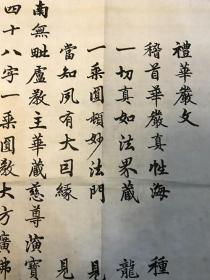 禮華嚴文
稽首華嚴真性海 種
一切真如法界藏 龍
一乘圓頓妙法門 見
當知夙有大因緣 見
南無毗盧教主華藏慈尊演寶
四十八字一乘圓教大方廣佛